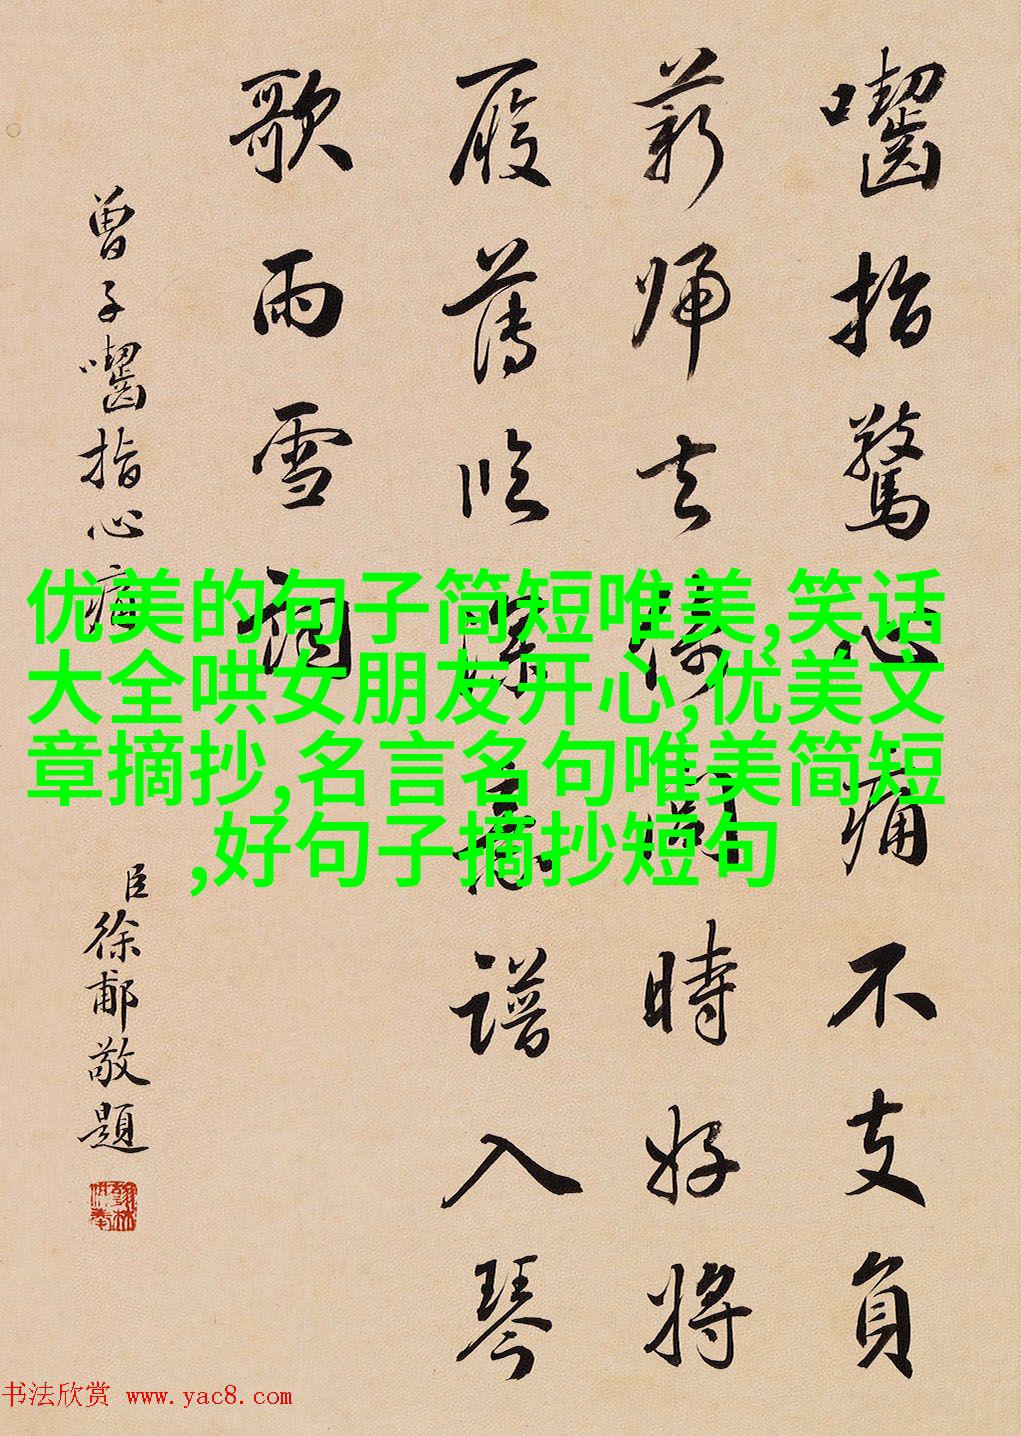 嚙指驚心痛不支負
薪歸去倚閭時好將
履薄臨深意譜入琴
歌雨雪詞
曾子嚙指心痛
臣徐郙敬題
优美的句子简短唯美,笑话
大全哄女朋友开心,优美文
章摘抄,名言名句唯美简短
,好句子摘抄短句
书法欣赏 www.yac8.com